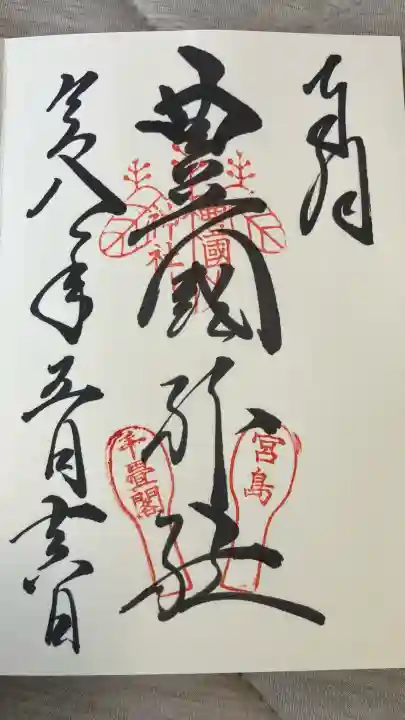 奉拝
豊國神社
令和八年五月十六日
豊國
神社
宮島
千畳閣